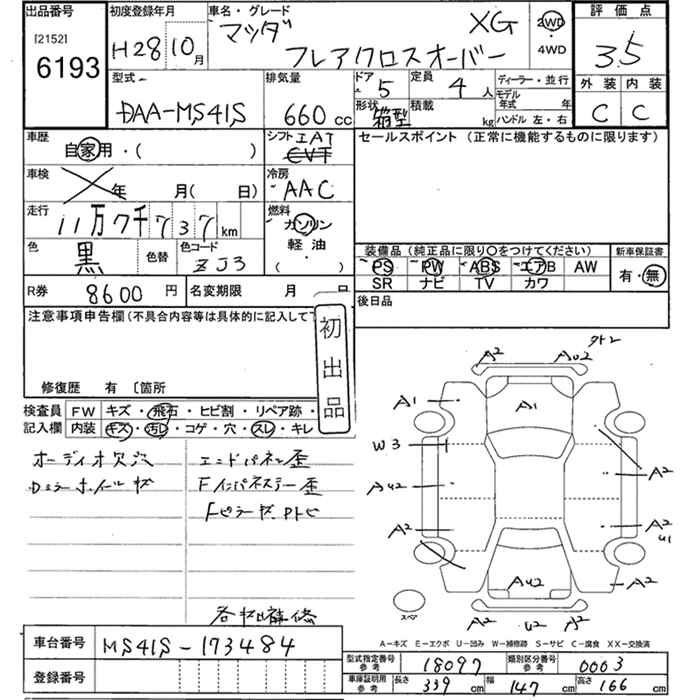 出品番号
[2152]
6193
初度登録年月
H28 10月
車名・グレード
マツダ XG
フレアクロスオーバー
2WD
・
4WD
評価点
3.5
外装 内装
C C
型式
DAA-MS41S
排気量
660 cc
ドア
5
定員
4人
形状
箱型
積載
kg
ディーラー・並行
モデル
年式 年
ハンドル 左・右
車歴
自家用・( )
シフト IAT
CVT
セールスポイント (正常に機能するものに限ります)
車検
年 月( 日)
冷房
AAC
走行
11万7千737km
燃料
ガソリン
軽油
( )
色
黒
色替
色コード
ZJ3
装備品(純正品に限り〇をつけてください)
PS PW ABS エアB AW
SR ナビ TV カワ
新車保証書
有・無
R券 8600円
名変期限 月 日
後日品
注意事項申告欄(不具合内容等は具体的に記入して下
初出品
修復歴 有 〔箇所
検査員 FW キズ・飛石・ヒビ割・リペア跡・
記入欄 内装 キズ・汚レ・コゲ・穴・スレ・キレ
オーディオ欠穴
ホイールキズ
エンドパネル歪
Fインパネステー歪
Fピラーキズ
各軽補修
A2 A02
A1 A1
W3
AU2 A2
A2 A2
U1
AU2 A2
A2 U2 A2
スペア
A-キズ E-エクボ U-凹み W-補修跡 S-サビ C-腐食 XX-交換済
車台番号 MS41S-173484
登録番号
型式指定番号
参考
18097
類別区分番号
参考
0003
車庫証明用
参考
長さ 339cm 幅 147cm 高さ 166cm